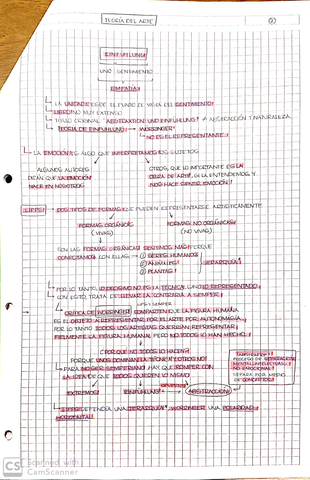 TEORÍA DEL ARTE
2
EINFÜHLUNG
UNO SENTIMIENTO
EMPATÍA
LA UNIDAD ES DE EL PUNTO DE VISTA DEL SENTIMIENTO
LIBRO NO MUY EXTENSO
TITULO ORIGINAL "ABSTRAKTION UND EINFÜHLUNG" ≠ ABSTRACCIÓN Y NATURALEZA
TEORÍA DE EINFÜHLUNG → WORRINGER
NO ES EL REPRESENTANTE
LA EMOCIÓN ES ALGO QUE INTERPRETAMOS LOS SUJETOS
ALGUNOS AUTORES
DIRÁN QUE LA EMOCIÓN
NACE EN NOSOTROS
OTROS, QUE LO IMPORTANTE ES LA
OBRA DE ARTE, SI LA ENTENDEMOS Y
NOS HACE SENTIR EMOCIÓN
LIPPS → DOS TIPOS DE FORMAS QUE PUEDEN REPRESENTARSE ARTÍSTICAMENTE
FORMAS ORGÁNICAS
(VIVAS)
FORMAS NO ORGÁNICAS
(NO VIVAS)
CON LAS FORMAS ORGÁNICAS SENTIMOS MÁS PORQUE
CONECTAMOS CON ELLAS → ① SERES HUMANOS
② ANIMALES
③ PLANTAS
JERARQUÍA*
POR LO TANTO, LO DECISIVO NO ES LA TÉCNICA, SINO LO REPRESENTADO
CON ESTO, TRATA DE LLEVAR LA CONTRARIA A SEMPER
LIPPS Y SEMPER
CRÍTICA DE WORRINGER: COMPARTEN QUE LA FIGURA HUMANA
ES EL OBJETO A REPRESENTAR POR EL ARTE POR AUTONOMASIA.
POR LO TANTO TODOS LOS ARTISTAS QUERRÍAN REPRESENTAR
FIELMENTE LA FIGURA HUMANA PERO NO TODOS LO HAN HECHO.
¿POR QUÉ NO TODOS LO HACEN?
PORQUE UNOS DOMINAN LA TÉCNICA Y OTROS NO
PARA NO SER SEMPERIANO HAY QUE ROMPER CON
LA IDEA DE QUE TODOS QUIEREN LO MISMO
EXTREMOS
EINFÜHLUNG
ABSTRACCIÓN
PROCESO DE SEPARACIÓN
MENTAL, INTELECTUAL,
NO EMOCIONAL
SEPARA POR MEDIO
DE CONCEPTOS
LIPPS DEFENDÍA UNA JERARQUÍA*, WORRINGER UNA POLARIDAD
HORIZONTAL
CS Scanned with
CamScanner